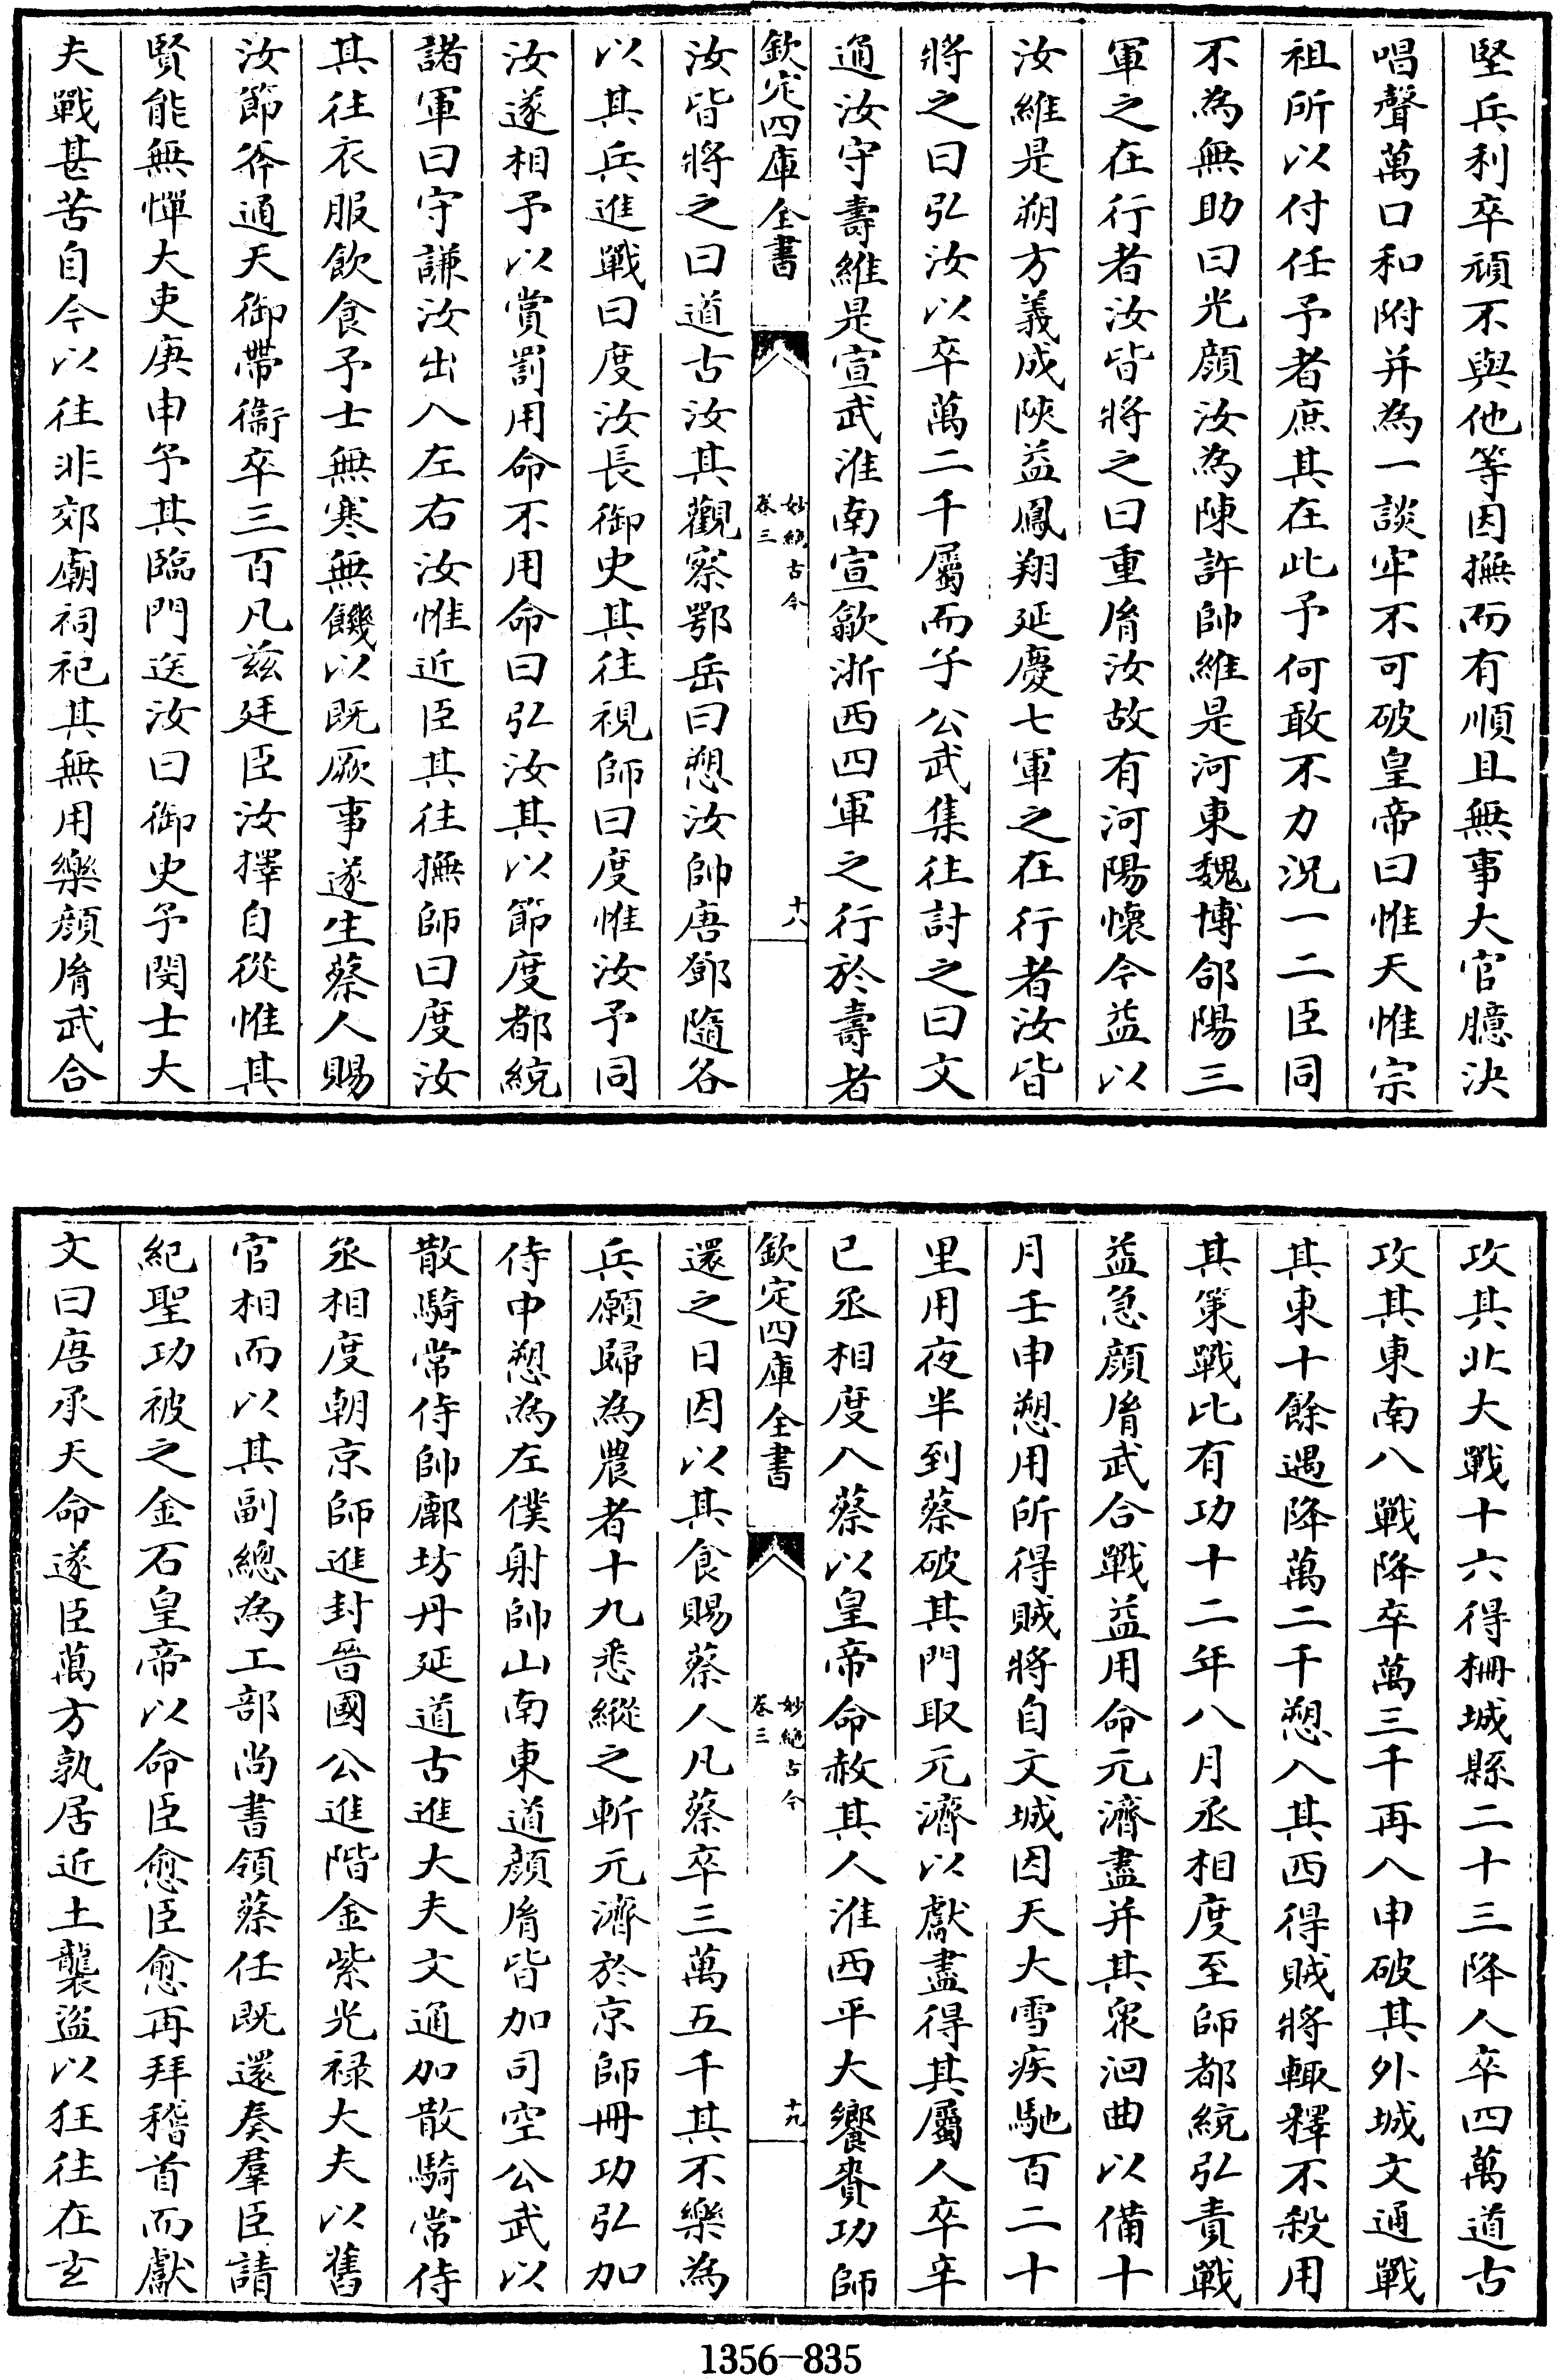 堅兵利卒頑不與他等因撫而有順且無事大官臆決
唱聲萬口和附并為一談牢不可破皇帝曰惟天惟宗
祖所以付任予者庶其在此予何敢不力況一二臣同
不為無助曰光顔汝為陳許帥維是河東魏博郃陽三
軍之在行者汝皆將之曰重𦙍汝故有河陽懷今益以
汝維是朔方義成陜益鳳翔延慶七軍之在行者汝皆
將之曰弘汝以卒萬二千屬而子公武集往討之曰文
通汝守壽維是宣武淮南宣歙浙西四軍之行於壽者
欽定四庫全書
妙絶古今
卷三
十八
汝皆將之曰道古汝其觀察鄂岳曰愬汝帥唐鄧隨各
以其兵進戰曰度汝長御史其往視師曰度惟汝予同
汝遂相予以賞罰用命不用命曰弘汝其以節度都統
諸軍曰守謙汝出入左右汝惟近臣其往撫師曰度汝
其往衣服飲食予士無寒無饑以既厥事遂生蔡人賜
汝節斧通天御帶衞卒三百凡兹廷臣汝擇自從惟其
賢能無憚大吏庚申予其臨門送汝曰御史予閔士大
夫戰甚苦自今以往非郊廟祠祀其無用樂顔𦙍武合
攻其北大戰十六得柵城縣二十三降人卒四萬道古
攻其東南八戰降卒萬三千再入申破其外城文通戰
其東十餘遇降萬二千愬入其西得賊將輒釋不殺用
其策戰比有功十二年八月丞相度至師都統弘責戰
益急顔𦙍武合戰益用命元濟盡并其衆洄曲以備十
月壬申愬用所得賊將自文城因天大雪疾馳百二十
里用夜半到蔡破其門取元濟以獻盡得其屬人卒辛
巳丞相度入蔡以皇帝命赦其人淮西平大饗賚功師
欽定四庫全書
妙絶古今
卷三
十九
還之日因以其食賜蔡人凡蔡卒三萬五千其不樂為
兵願歸為農者十九悉縱之斬元濟於京師冊功弘加
侍中愬為左僕射帥山南東道顔𦙍皆加司空公武以
散騎常侍帥鄜坊丹延道古進大夫文通加散騎常侍
丞相度朝京師進封晉國公進階金紫光禄大夫以舊
官相而以其副總為工部尚書領蔡任既還奏羣臣請
紀聖功被之金石皇帝以命臣愈臣愈再拜稽首而獻
文曰唐承天命遂臣萬方孰居近土襲盜以狂往在玄
1356-835